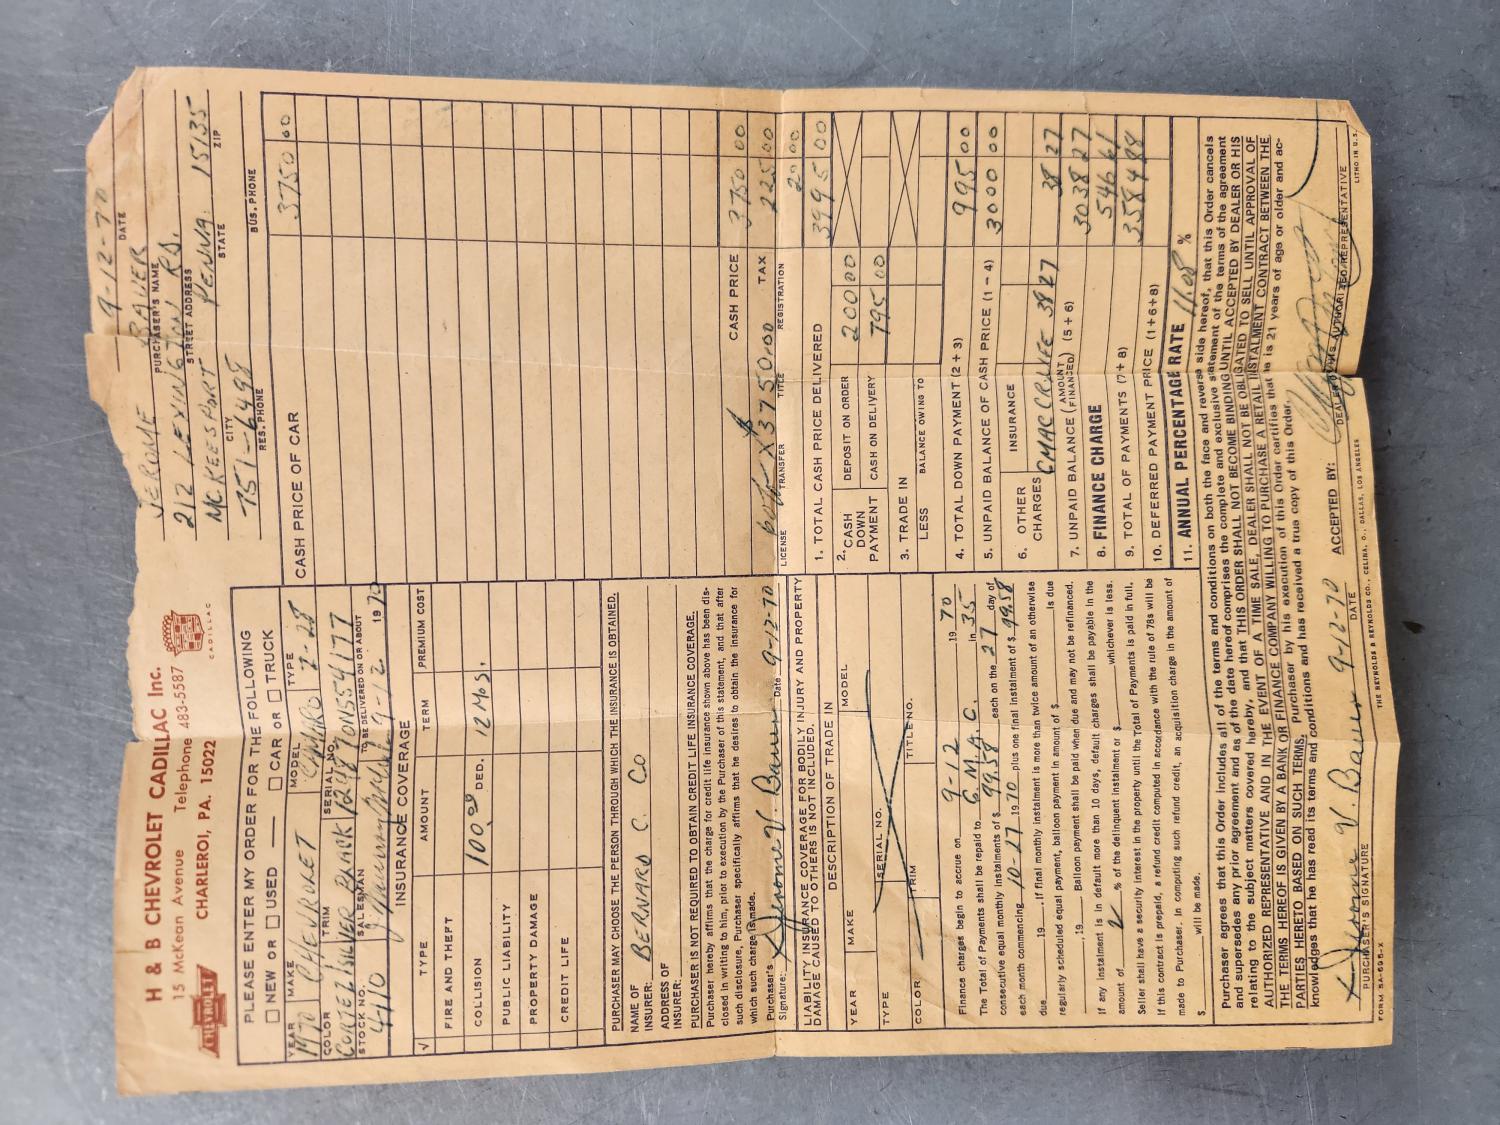 H & B CHEVROLET CADILLAC Inc.
15 McKean Avenue Telephone 483-5587
CHARLEROI, PA. 15022
CHEVROLET
CADILLAC
9-12-70
DATE
JEROME BAUER
PURCHASER'S NAME
212 LEXINGTON RD.
STREET ADDRESS
MCKEESPORT PENNA. 15135
CITY STATE ZIP
751-6498
RES. PHONE BUS. PHONE
PLEASE ENTER MY ORDER FOR THE FOLLOWING
NEW OR USED — CAR OR TRUCK
YEAR MAKE MODEL TYPE
1970 CHEVROLET CAMARO Z-28
COLOR TRIM SERIAL NO.
CORTEZ SILVER BLACK 124870N554177
STOCK NO. SALESMAN TO BE DELIVERED ON OR ABOUT
9-12 1970
INSURANCE COVERAGE
√ TYPE AMOUNT TERM PREMIUM COST
FIRE AND THEFT
COLLISION 100.00 DED. 12 MOS.
PUBLIC LIABILITY
PROPERTY DAMAGE
CREDIT LIFE
PURCHASER MAY CHOOSE THE PERSON THROUGH WHICH THE INSURANCE IS OBTAINED.
NAME OF
INSURER: BERNARD C. CO
ADDRESS OF
INSURER:
PURCHASER IS NOT REQUIRED TO OBTAIN CREDIT LIFE INSURANCE COVERAGE.
Purchaser hereby affirms that the charge for credit life insurance shown above has been dis-
closed in writing to him, prior to execution by the Purchaser of this statement, and that after
such disclosure, Purchaser specifically affirms that he desires to obtain the insurance for
which such charge is made.
Purchaser's
Signature: X Jerome V. Bauer Date 9-12-70
LIABILITY INSURANCE COVERAGE FOR BODILY INJURY AND PROPERTY
DAMAGE CAUSED TO OTHERS IS NOT INCLUDED.
DESCRIPTION OF TRADE IN
YEAR MAKE MODEL
TYPE SERIAL NO.
COLOR TRIM TITLE NO.
Finance charges begin to accrue on 9-12 19 70
The Total of Payments shall be repaid to G.M.A.C. in 35
consecutive equal monthly instalments of $ 99.58 each on the 27 day of
each month commencing 10-27 19 70 plus one final instalment of $ 99.58
due 19 . If final monthly instalment is more than twice amount of an otherwise
regularly scheduled equal payment, balloon payment in amount of $ is due
, 19 . Balloon payment shall be paid when due and may not be refinanced.
If any instalment is in default more than 10 days, default charges shall be payable in the
amount of 2 % of the delinquent instalment or $ whichever is less.
Seller shall have a security interest in the property until the Total of Payments is paid in full.
If this contract is prepaid, a refund credit computed in accordance with the rule of 78s will be
made to Purchaser. In computing such refund credit, an acquisition charge in the amount of
$ will be made.
CASH PRICE OF CAR 3750 00
CASH PRICE 3750 00
$ X 3750.00 TAX 225 00
LICENSE TRANSFER TITLE REGISTRATION 20 00
1. TOTAL CASH PRICE DELIVERED 3995 00
2. CASH DOWN PAYMENT DEPOSIT ON ORDER 200 00
CASH ON DELIVERY 795 00
3. TRADE IN
LESS BALANCE OWING TO
4. TOTAL DOWN PAYMENT (2 + 3) 995 00
5. UNPAID BALANCE OF CASH PRICE (1 - 4) 3000 00
6. OTHER CHARGES INSURANCE
38 27 38 27
7. UNPAID BALANCE (AMOUNT FINANCED) (5 + 6) 3038 27
8. FINANCE CHARGE 546 61
9. TOTAL OF PAYMENTS (7 + 8) 3584 88
10. DEFERRED PAYMENT PRICE (1+6+8)
11. ANNUAL PERCENTAGE RATE 11.08 %
Purchaser agrees that this Order includes all of the terms and conditions on both the face and reverse side hereof, that this Order cancels
and supersedes any prior agreement and as of the date hereof comprises the complete and exclusive statement of the terms of the agreement
relating to the subject matters covered hereby, and that THIS ORDER SHALL NOT BECOME BINDING UNTIL ACCEPTED BY DEALER OR HIS
AUTHORIZED REPRESENTATIVE AND IN THE EVENT OF A TIME SALE, DEALER SHALL NOT BE OBLIGATED TO SELL UNTIL APPROVAL OF
THE TERMS HEREOF IS GIVEN BY A BANK OR FINANCE COMPANY WILLING TO PURCHASE A RETAIL INSTALMENT CONTRACT BETWEEN THE
PARTIES HERETO BASED ON SUCH TERMS. Purchaser by his execution of this Order certifies that he is 21 years of age or older and ac-
knowledges that he has read its terms and conditions and has received a true copy of this Order.
X Jerome V. Bauer 9-12-70 ACCEPTED BY:
PURCHASER'S SIGNATURE DATE DEALER OR HIS AUTHORIZED REPRESENTATIVE
FORM SA-695-X THE REYNOLDS & REYNOLDS CO., CELINA, O., DALLAS, LOS ANGELES LITHO IN U.S.